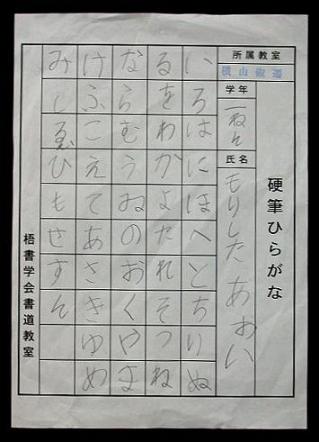 硬筆ひらがな
所属教室
横山
学年
一ねん
氏名
もりした あおい
いろはにほへとちりぬ
るをわかよたれそつね
ならむうゐのおくやま
けふこえてあさきゆめ
みしゑひもせすん
梧書学会書道教室